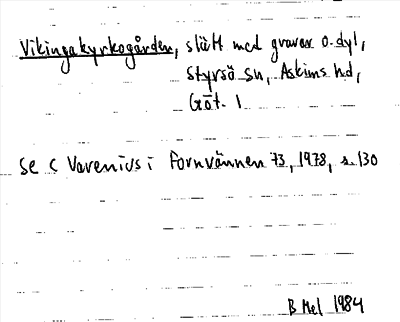 Vikingakyrkogården, slätt med gravar o. dyl,
Styrsö sn, Askims hd,
Göt. l
Se C Varenius i Fornvännen 73, 1978, s. 130
B Mel 1984